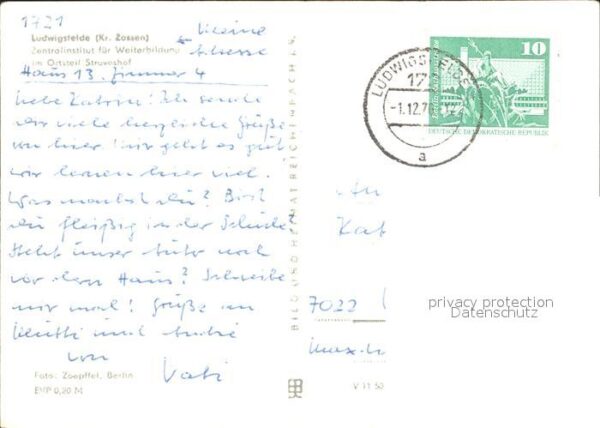 1721
Meine
Ludwigsfelde (Kr. Zossen)
Zentralinstitut für Weiterbildung
Adresse
im Ortsteil Struveshof
Haus 13, Zimmer 4
Liebe Katrin! Ich sende
dir viele herzliche Grüße
von hier. Mir geht es gut
wir lernen hier viel.
Was machst du? Bist
du fleißig in der Schule?
Steht unser Auto noch
vor dem Haus? Schreibe
mir mal! Grüße an
Mutti und
von
Vati
Foto: Zoepffel, Berlin
EVP 0,20 M
BILD UND HEIMAT REICHENBACH
V 11 50
LUDWIGSFELDE
172
-1.12.76
a
10
DEUTSCHE DEMOKRATISCHE REPUBLIK
An
Kat
7022
Max-
privacy protection
Datenschutz